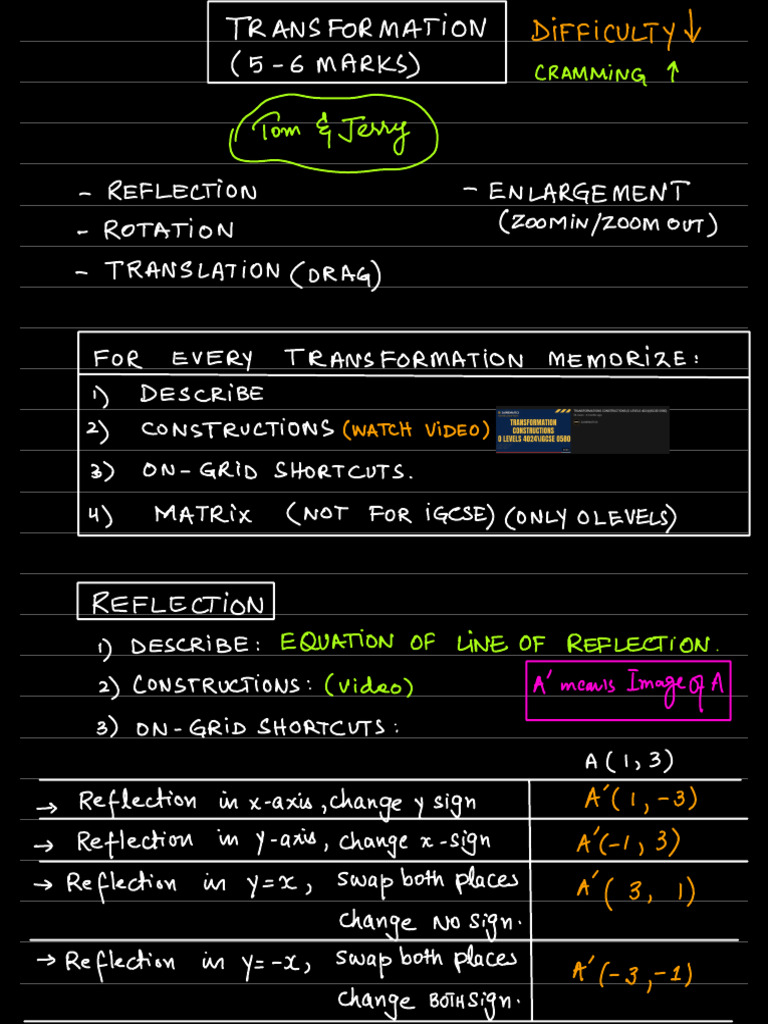 TRANSFORMATION
(5-6 MARKS)
DIFFICULTY ↓
CRAMMING ↑
Tom & Jerry
- REFLECTION
- ROTATION
- TRANSLATION (DRAG)
- ENLARGEMENT
(ZOOMIN/ZOOM OUT)
FOR EVERY TRANSFORMATION MEMORIZE:
1) DESCRIBE
2) CONSTRUCTIONS (WATCH VIDEO)
TRANSFORMATION
CONSTRUCTIONS
O LEVELS 4024\IGCSE 0580
3) ON-GRID SHORTCUTS.
4) MATRIX (NOT FOR IGCSE) (ONLY OLEVELS)
REFLECTION
1) DESCRIBE: EQUATION OF LINE OF REFLECTION.
2) CONSTRUCTIONS: (video)
A' means Image of A
3) ON-GRID SHORTCUTS:
A(1,3)
→ Reflection in x-axis, change y sign A'(1,-3)
→ Reflection in y-axis, change x-sign A'(-1, 3)
→ Reflection in y=x, swap both places A'(3, 1)
change NO sign.
→ Reflection in y=-x, swap both places A'(-3,-1)
change BOTH sign.